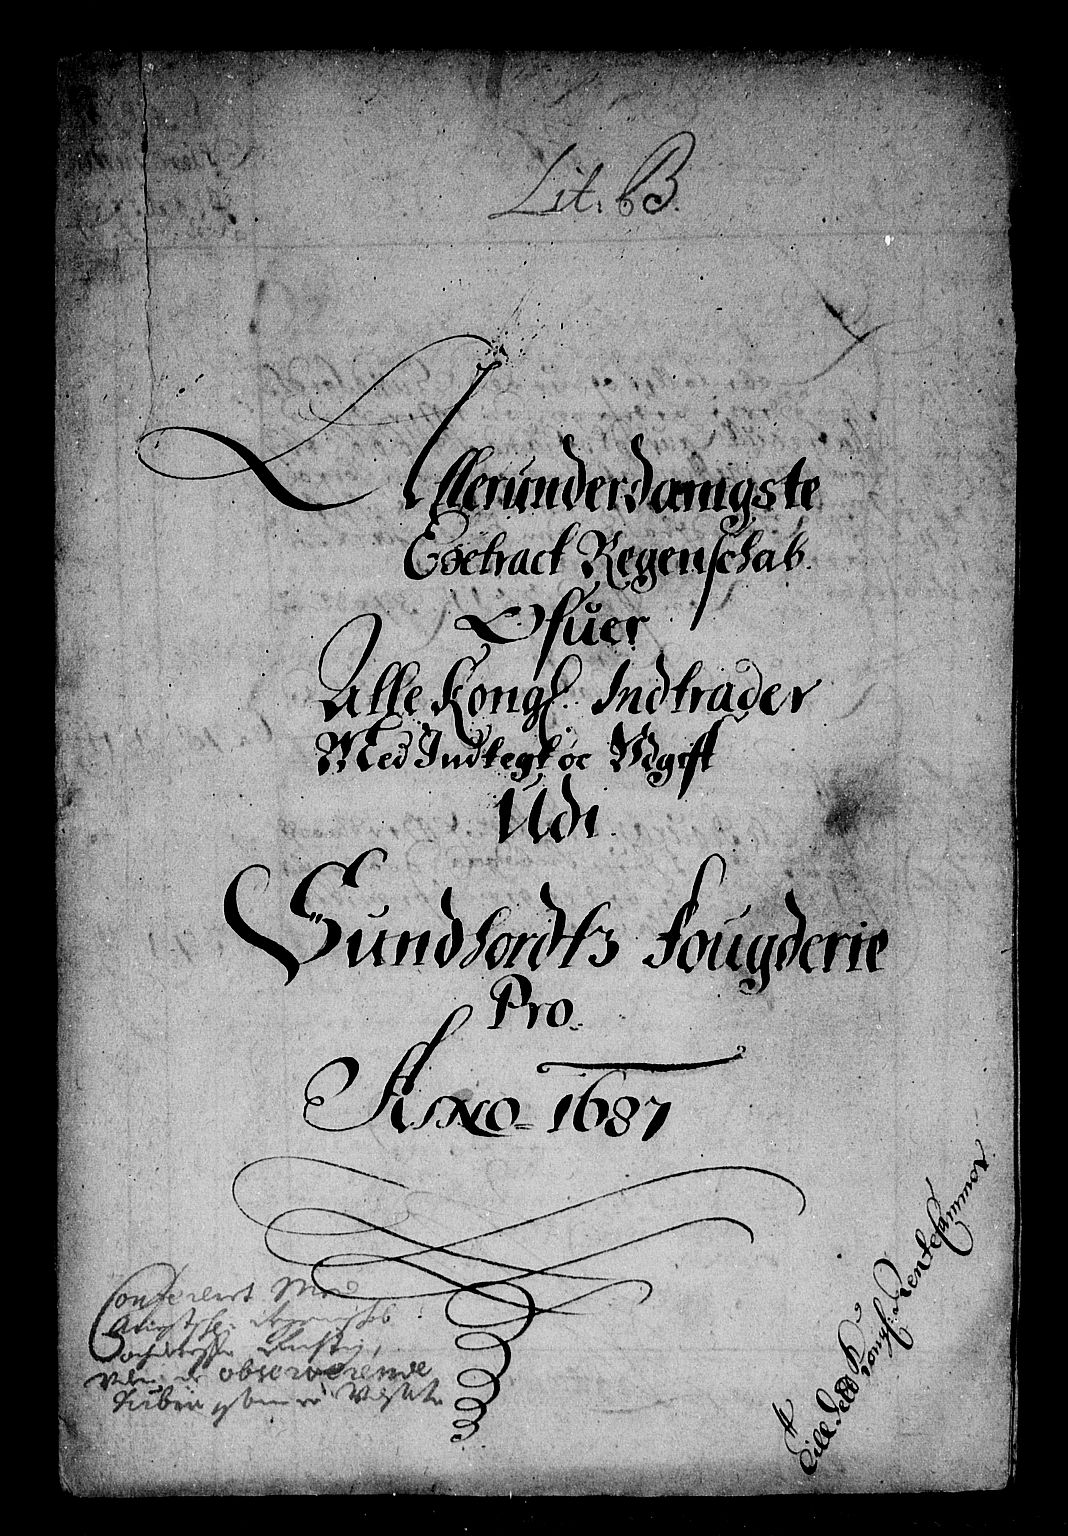 Lit. B.
Allerunderdanigste
Extract Regenschab
Ofuer
Alle Kongl. Indtrader
Med Indtegt oc Udgift
Udi
Sundhordtz fougderie
Pro
Anno 1687
Confereret Med
observerende
Till Det Kongl: Rentekammer.